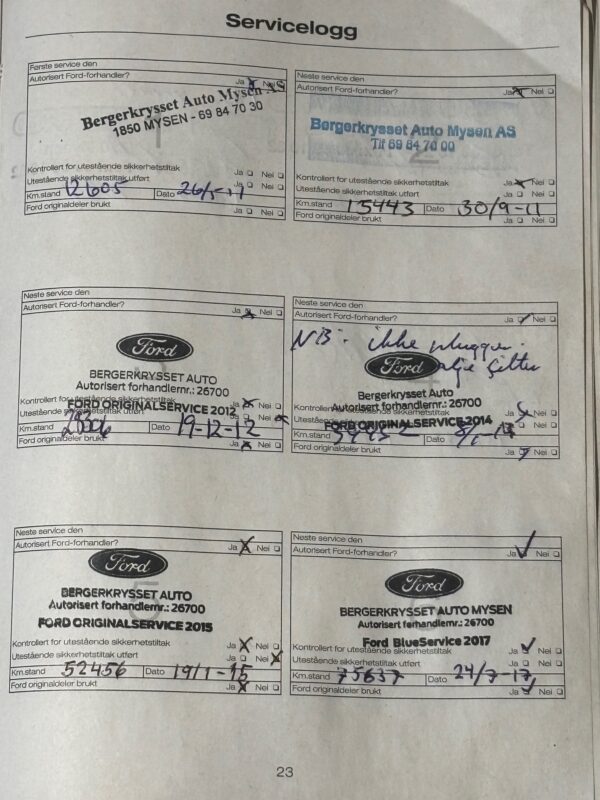 Servicelogg
Første service den
Autorisert Ford-forhandler? Ja Nei
Bergerkrysset Auto Mysen AS
1850 MYSEN - 69 84 70 30
Kontrollert for utestående sikkerhetstiltak Ja Nei
Utestående sikkerhetstiltak utført Ja Nei
Km.stand 12605 Dato
Ford originaldeler brukt Ja Nei
Neste service den
Autorisert Ford-forhandler? Ja Nei
Bergerkrysset Auto Mysen AS
Tlf 69 84 70 00
2
Kontrollert for utestående sikkerhetstiltak Ja Nei
Utestående sikkerhetstiltak utført Ja Nei
Km.stand 15443 Dato 30/9-11
Ford originaldeler brukt Ja Nei
Neste service den
Autorisert Ford-forhandler? Ja Nei
Ford
BERGERKRYSSET AUTO
Autorisert forhandlernr.: 26700
Kontrollert for utestående sikkerhetstiltak Ja Nei
FORD ORIGINALSERVICE 2012
Utestående sikkerhetstiltak utført Ja Nei
Km.stand Dato 19-12-12
Ford originaldeler brukt Ja Nei
Neste service den
Autorisert Ford-forhandler? Ja Nei
NB: ikke plugger
Ford
BERGERKRYSSET AUTO
Autorisert forhandlernr.: 26700
Kontrollert for utestående sikkerhetstiltak Ja Nei
Utestående sikkerhetstiltak utført Ja Nei
FORD ORIGINALSERVICE 2014
Km.stand Dato
Ford originaldeler brukt Ja Nei
Neste service den
Autorisert Ford-forhandler? Ja Nei
Ford
5
BERGERKRYSSET AUTO
Autorisert forhandlernr.: 26700
FORD ORIGINALSERVICE 2015
Kontrollert for utestående sikkerhetstiltak Ja Nei
Utestående sikkerhetstiltak utført Ja Nei
Km.stand 52456 Dato 19/1-15
Ford originaldeler brukt Ja Nei
Neste service den
Autorisert Ford-forhandler? Ja Nei
Ford
BERGERKRYSSET AUTO MYSEN
Autorisert forhandlernr.: 26700
Ford BlueService 2017
Kontrollert for utestående sikkerhetstiltak Ja Nei
Utestående sikkerhetstiltak utført Ja Nei
Km.stand 75637 Dato 24/7-17
Ford originaldeler brukt Ja Nei
23